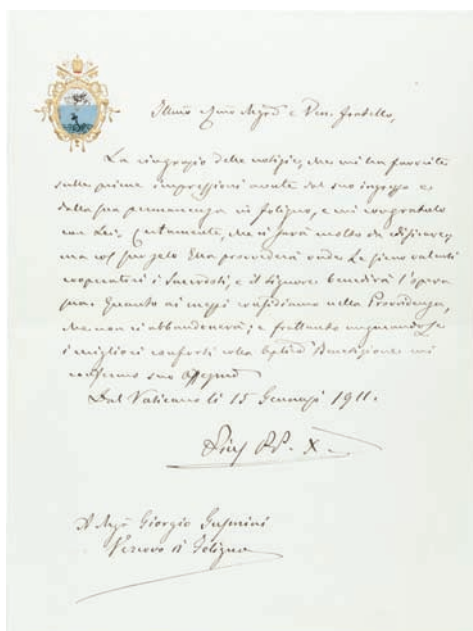 Illmo e Rmo Monsigr e Ven. fratello,
La ringrazio delle notizie, che mi ha favorite
sulle prime impressioni avute dal suo ingresso e
dalla sua permanenza in Foligno, e mi congratulo
con Lei. Certamente, che vi sarà molto da
ma col suo zelo Ella provvederà onde Le siano valenti
cooperatori i Sacerdoti, e il Signore benedirà l'opera
sua. Quanto ai mezzi confidiamo nella Provvidenza,
che non ci abbandonerà; e frattanto augurandole
i migliori conforti colla Benedizione mi
confermo suo
Dal Vaticano li 15 Gennajo 1911.
Pius PP. X.
A Giorgio Gusmini
Vescovo di Foligno